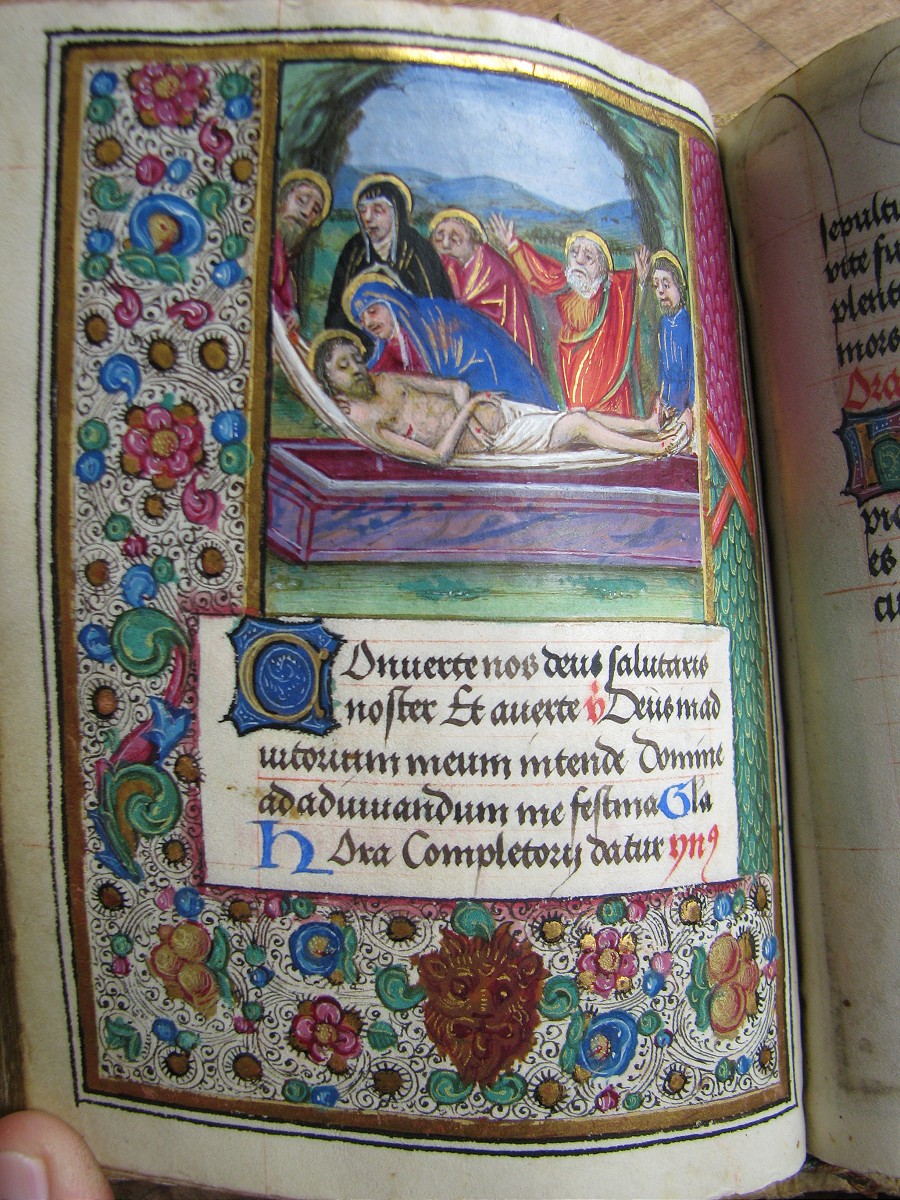 Onuerte nos deus salutaris
noster Et auerte v Deus in ad
iutorium meum intende Domine
ad adiuuandum me festina Gla
hOra Completorij datur ymꝰ
sepultu
vite fu
plent
mors
Ora
pio
es